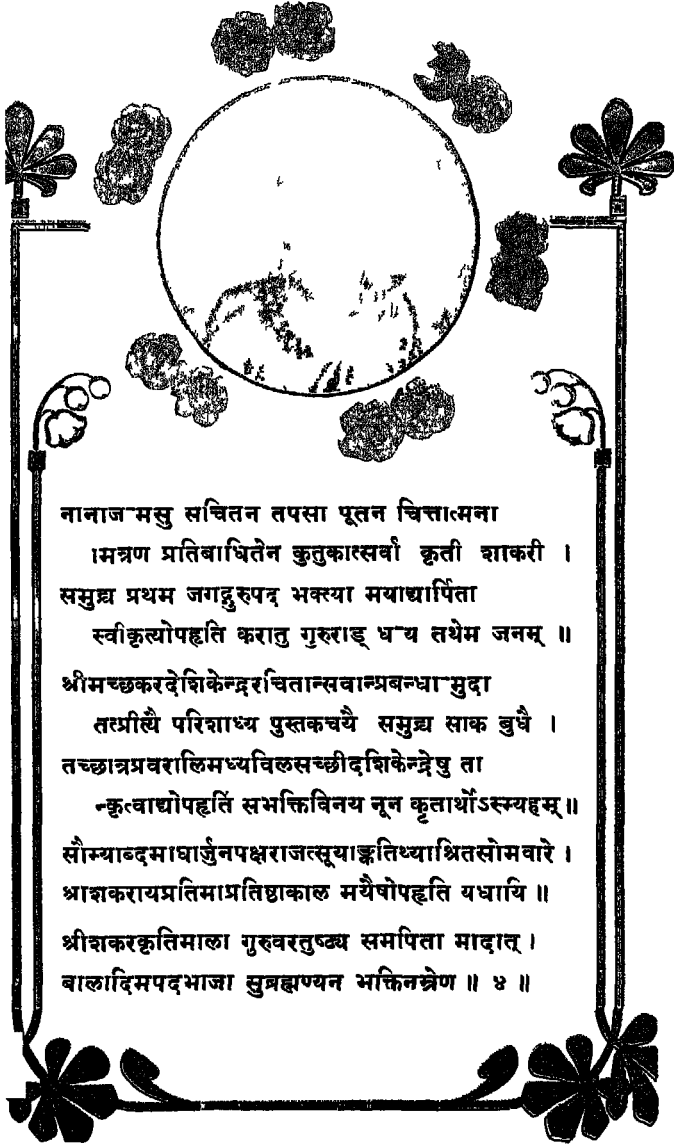 नानाजन्मसु सचितन तपसा पूतन चित्तात्मना
मित्रण प्रतिबाधितेन कुतुकात्सर्वा कृती शाकरी ।
समुद्र्य प्रथम जगद्गुरुपद भक्त्या मयाद्यार्पिता
स्वीकृत्योपहृति करातु गुरुराड् धन्य तथेम जनम् ॥
श्रीमच्छकरदेशिकेन्द्ररचितान्सवान्प्रबन्धान्मुदा
तत्प्रीत्यै परिशाध्य पुस्तकचयै समुद्र्य साक बुधै ।
तच्छात्रप्रवरालिमध्यविलसच्छीदशिकेन्द्रेषु ता
न्कृत्वाद्योपहृतिं सभक्तिविनय नून कृतार्थोऽस्म्यहम् ॥
सौम्याब्दमाघार्जुनपक्षराजत्सूयाङ्कतिथ्याश्रितसोमवारे ।
श्राशकरायप्रतिमाप्रतिष्ठाकाल मयैषोपहृति यधायि ॥
श्रीशकरकृतिमाला गुरुवरतुष्ट्य समपिता मादात् ।
बालादिमपदभाजा सुब्रह्मण्यन भक्तिनम्रेण ॥ ४ ॥